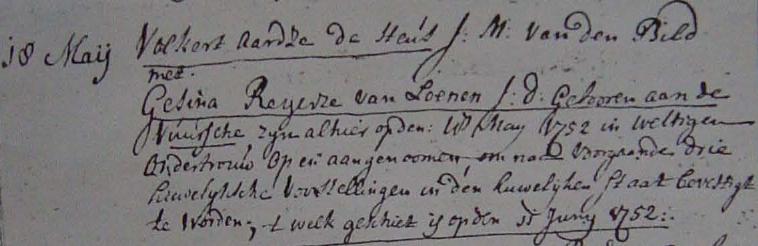 18 Maij Volkert Aardze de Heús J: M: van den Bild
met.
Gesina Reyerze van Loenen J: d: Gebooren aan de
Vuursche zyn alhier op den: 18 May 1752 in wettigen
Ondertrouw op en aangenoomen om na Voorgaande drie
huwelyksche Voorstellingen in den huwelyken staat bevestigt
te Worden; 't welk geschiet is op den Juny 1752: